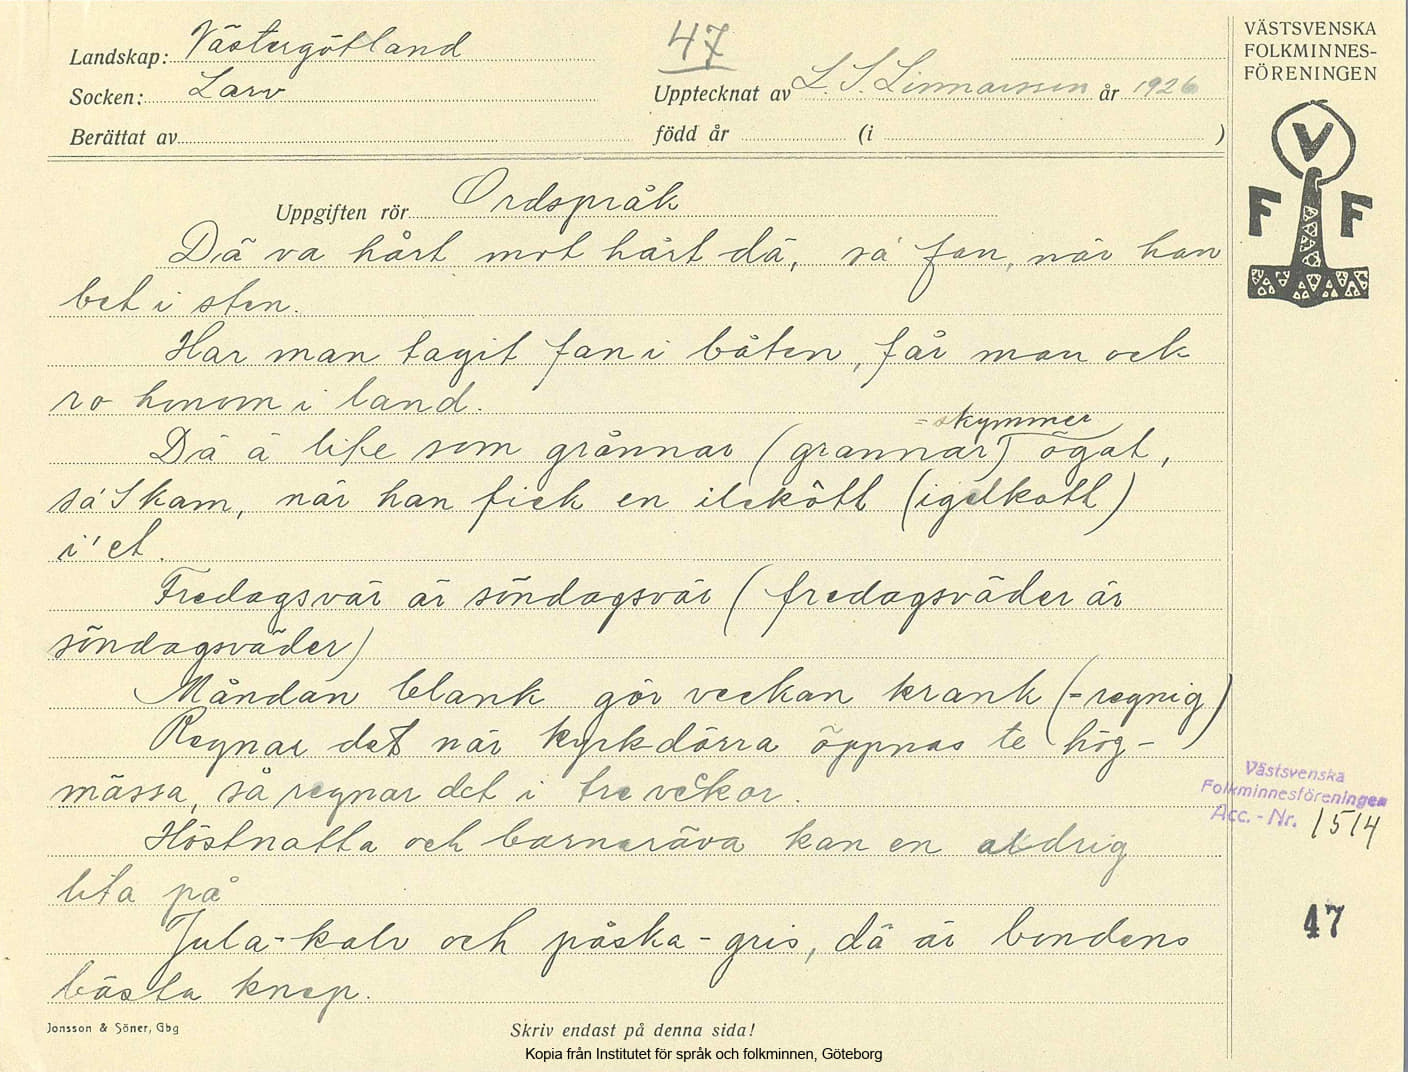 Landskap: Västergötland
Socken: Larv
Berättat av
47
Upptecknat av L. S. Linnarsson år 1926
född år (i )
VÄSTSVENSKA
FOLKMINNES-
FÖRENINGEN
V
F F
Uppgiften rör Ordspråk
Dä va hårt mot hårt dä, sa' fan, när han
bet i sten.
Har man tagit fan i båten, får man ock
ro honom i land.
= skymmer
Dä ä like som grånnar (grannar) ögat,
sa' Skam, når han fick en ilekôtt (igelkott)
i' et.
Fredagsvär är söndagsvär (fredagsväder är
söndagsväder)
Måndan blank gör veckan krank (-regnig)
Regnar det när kyrkdörra öppnas te hög-
mässa, så regnar det i tre veckor.
Höstnatta och barnaräva kan en aldrig
lita på
Jula-kalv och påska-gris, dä är bondens
bästa knep.
Västsvenska
Folkminnesföreningen
Acc. - Nr. 1514
47
Jonsson & Söner, Gbg
Skriv endast på denna sida!
Kopia från Institutet för språk och folkminnen, Göteborg